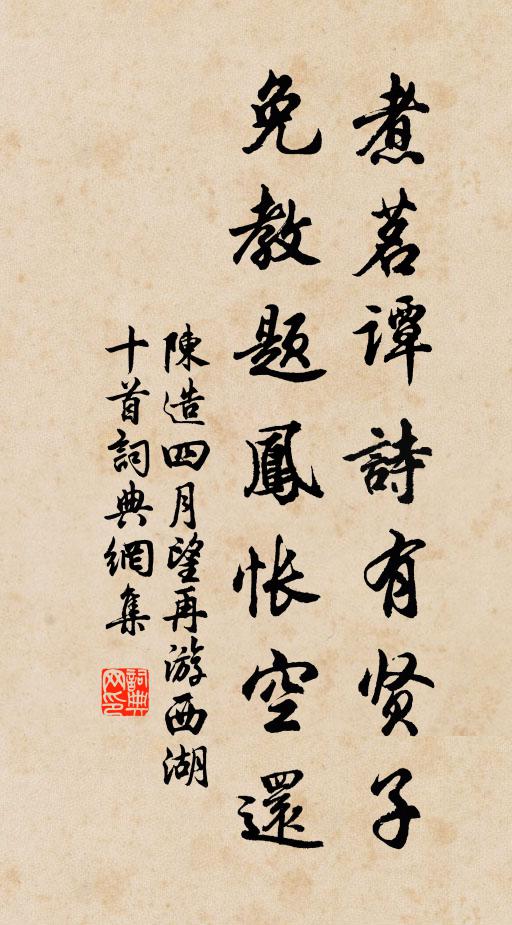 煮茗谭詩有贤子
免教题鳳怅空還
陳造四月望再游西湖
十首詞典網集
詞典网印